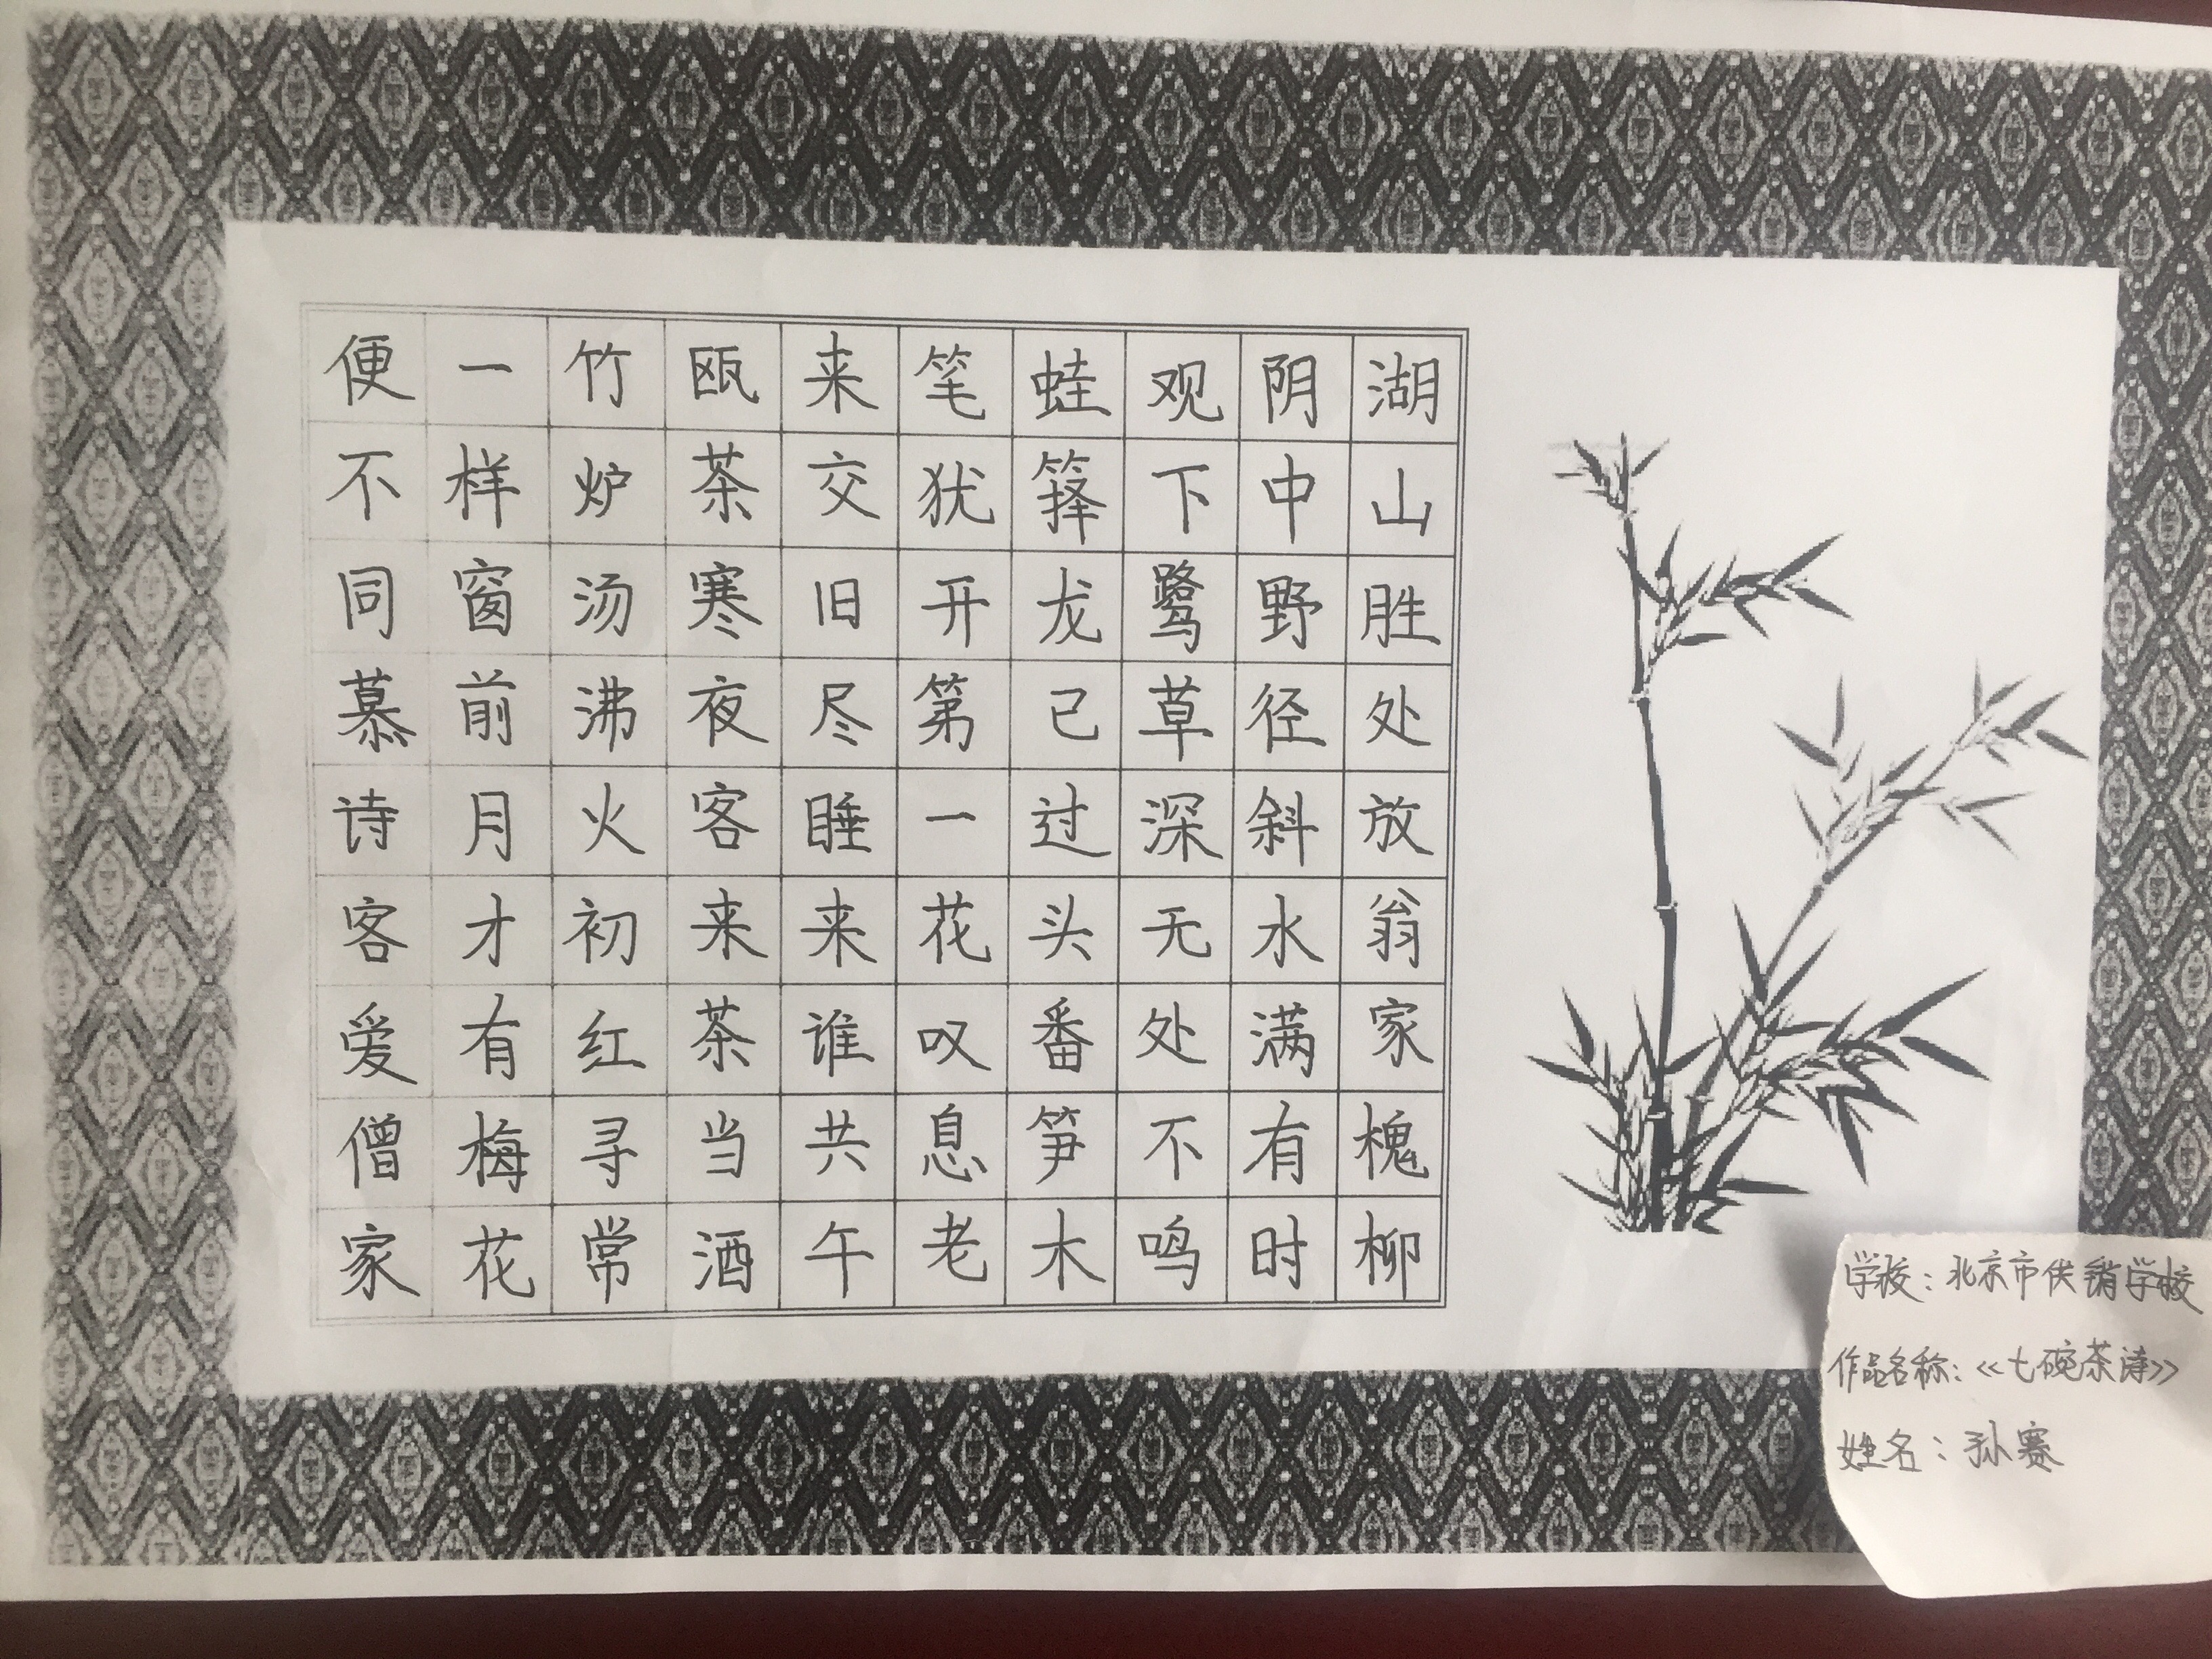 湖山胜处放翁家槐柳
阴中野径斜水满有时
观下鹭草深无处不鸣
蛙箨龙已过头番笋木
笔犹开第一花叹息老
来交旧尽睡来谁共午
瓯茶寒夜客来茶当酒
竹炉汤沸火初红寻常
一样窗前月才有梅花
便不同慕诗客爱僧家
学校：北京市供销学校
作品名称：《七碗茶诗》
姓名：孙赛